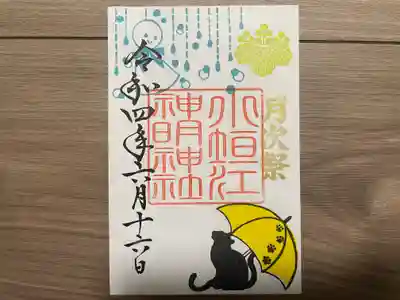 月次祭
小垣江
神明神社
令和四年六月十六日